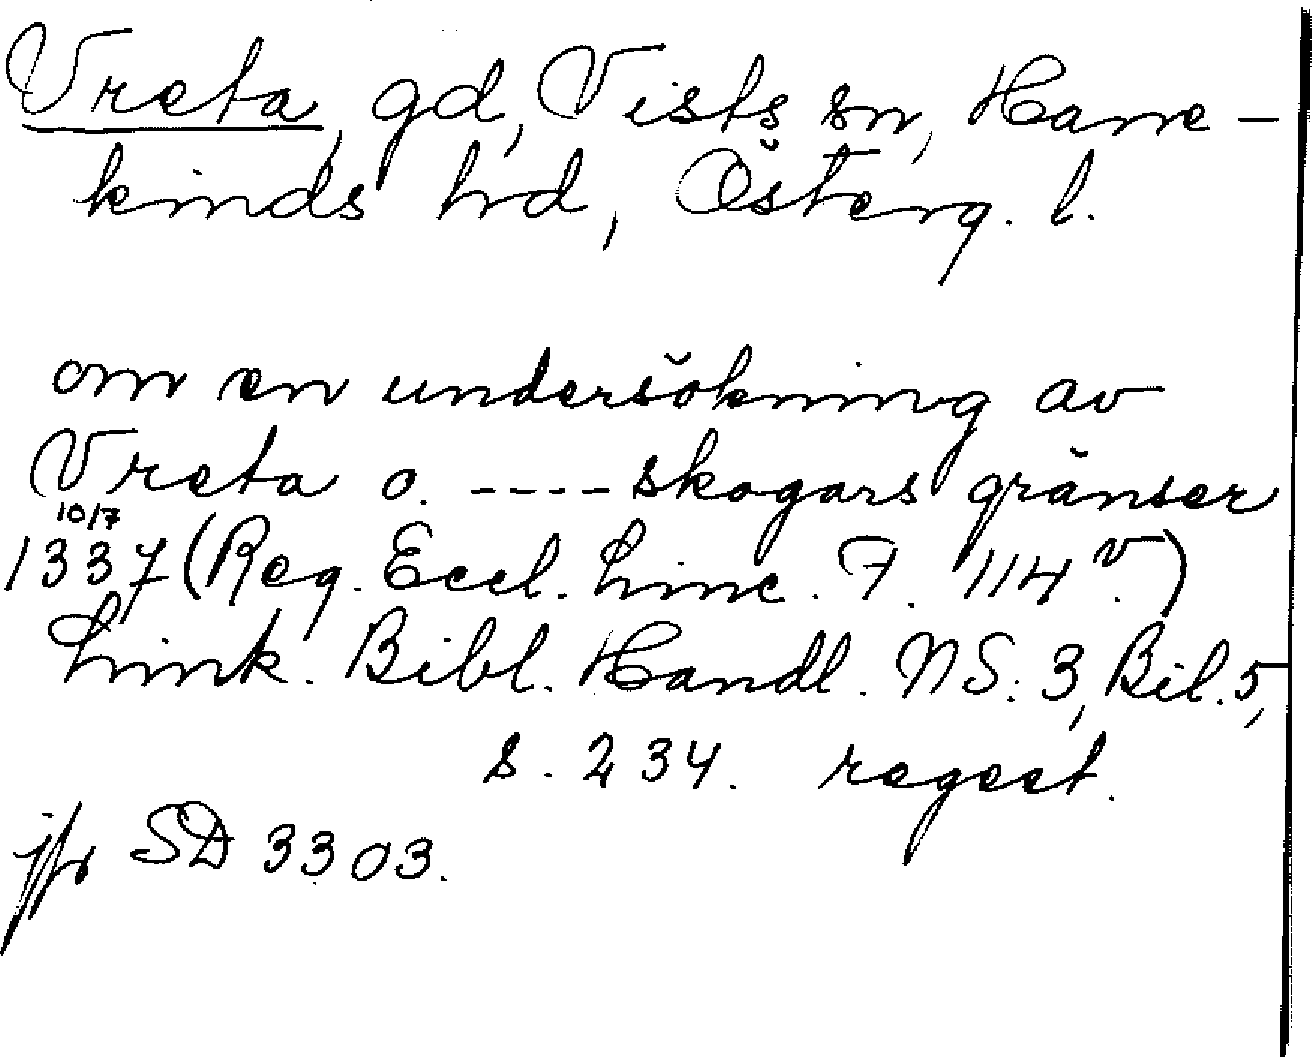 Vreta, gd, Vists sn, Hane-
kinds hd, Österg. l.
om en undersökning av
Vreta o. ---- skogars gränser
10/7
1337 (Reg. Eccl. Linc. F. 114 v.)
Link. Bibl. Handl. NS: 3, Bil. 5,
s. 234. regest.
jfr SD 3303.